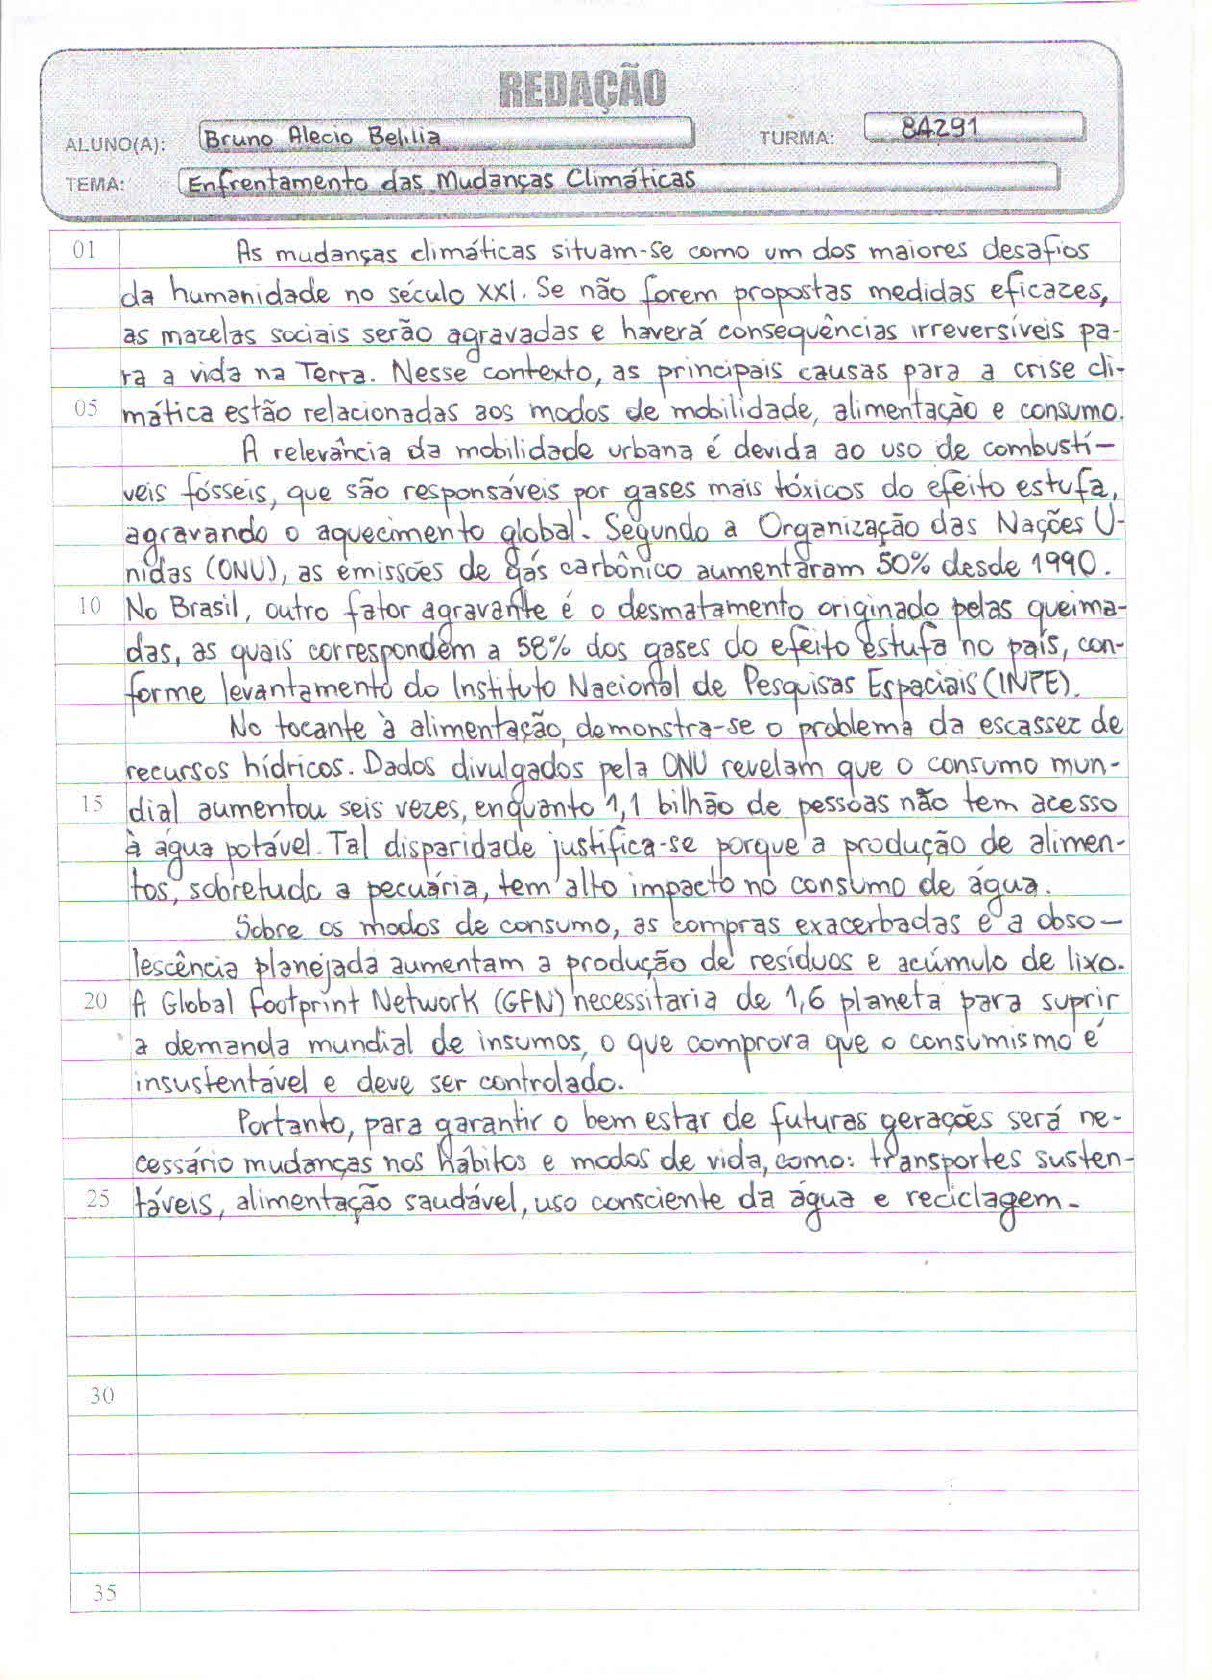 REDAÇÃO
ALUNO(A): Bruno Alecio
TURMA: 84291
TEMA: Enfrentamento das Mudanças Climáticas
01 As mudanças climáticas situam-se como um dos maiores desafios
da humanidade no século XXI. Se não forem propostas medidas eficazes,
as mazelas sociais serão agravadas e haverá consequências irreversíveis pa-
ra a vida na Terra. Nesse contexto, as principais causas para a crise cli-
05 mática estão relacionadas aos modos de mobilidade, alimentação e consumo.
A relevância da mobilidade urbana é devida ao uso de combustí-
veis fósseis, que são responsáveis por gases mais tóxicos do efeito estufa,
agravando o aquecimento global. Segundo a Organização das Nações U-
nidas (ONU), as emissões de gás carbônico aumentaram 50% desde 1990.
10 No Brasil, outro fator agravante é o desmatamento originado pelas queima-
das, as quais correspondem a 58% dos gases do efeito estufa no país, con-
forme levantamento do Instituto Nacional de Pesquisas Espaciais (INPE).
No tocante à alimentação, demonstra-se o problema da escassez de
recursos hídricos. Dados divulgados pela ONU revelam que o consumo mun-
15 dial aumentou seis vezes, enquanto 1,1 bilhão de pessoas não tem acesso
à água potável. Tal disparidade justifica-se porque a produção de alimen-
tos, sobretudo a pecuária, tem alto impacto no consumo de água.
Sobre os modos de consumo, as compras exacerbadas e a obso-
lescência planejada aumentam a produção de resíduos e acúmulo de lixo.
20 A Global Footprint Network (GFN) necessitaria de 1,6 planeta para suprir
a demanda mundial de insumos, o que comprova que o consumismo é
insustentável e deve ser controlado.
Portanto, para garantir o bem estar de futuras gerações será ne-
cessário mudanças nos hábitos e modos de vida, como: transportes susten-
25 táveis, alimentação saudável, uso consciente da água e reciclagem.
30
35